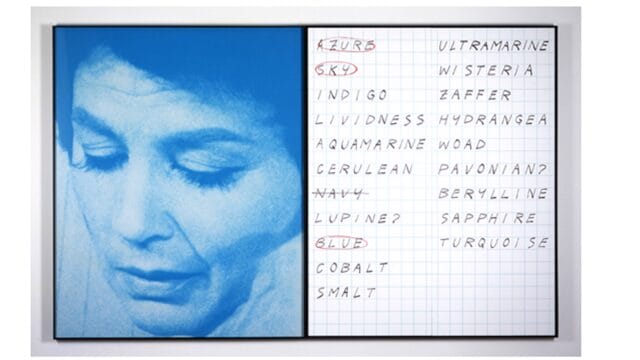 AZURE
SKY
INDIGO
LIVIDNESS
AQUAMARINE
CERULEAN
NAVY
LUPINE?
BLUE
COBALT
SMALT
ULTRAMARINE
WISTERIA
ZAFFER
HYDRANGEA
WOAD
PAVONIAN?
BERYLLINE
SAPPHIRE
TURQUOISE